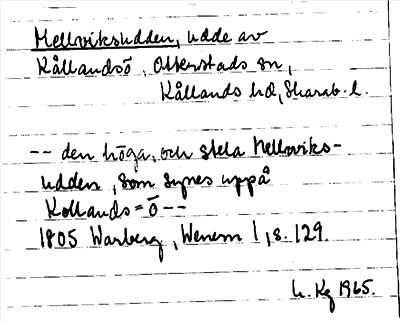 Hellviksudden, udde av
Kållandsö, Otterstads sn,
Kållands hd, Skarab. l.
-- den höga, och stela Hellowiks-
udden, som synes uppå
Kollands=Ö --
1805 Warberg, Wenern 1, s. 129.
L. Kg 1965.